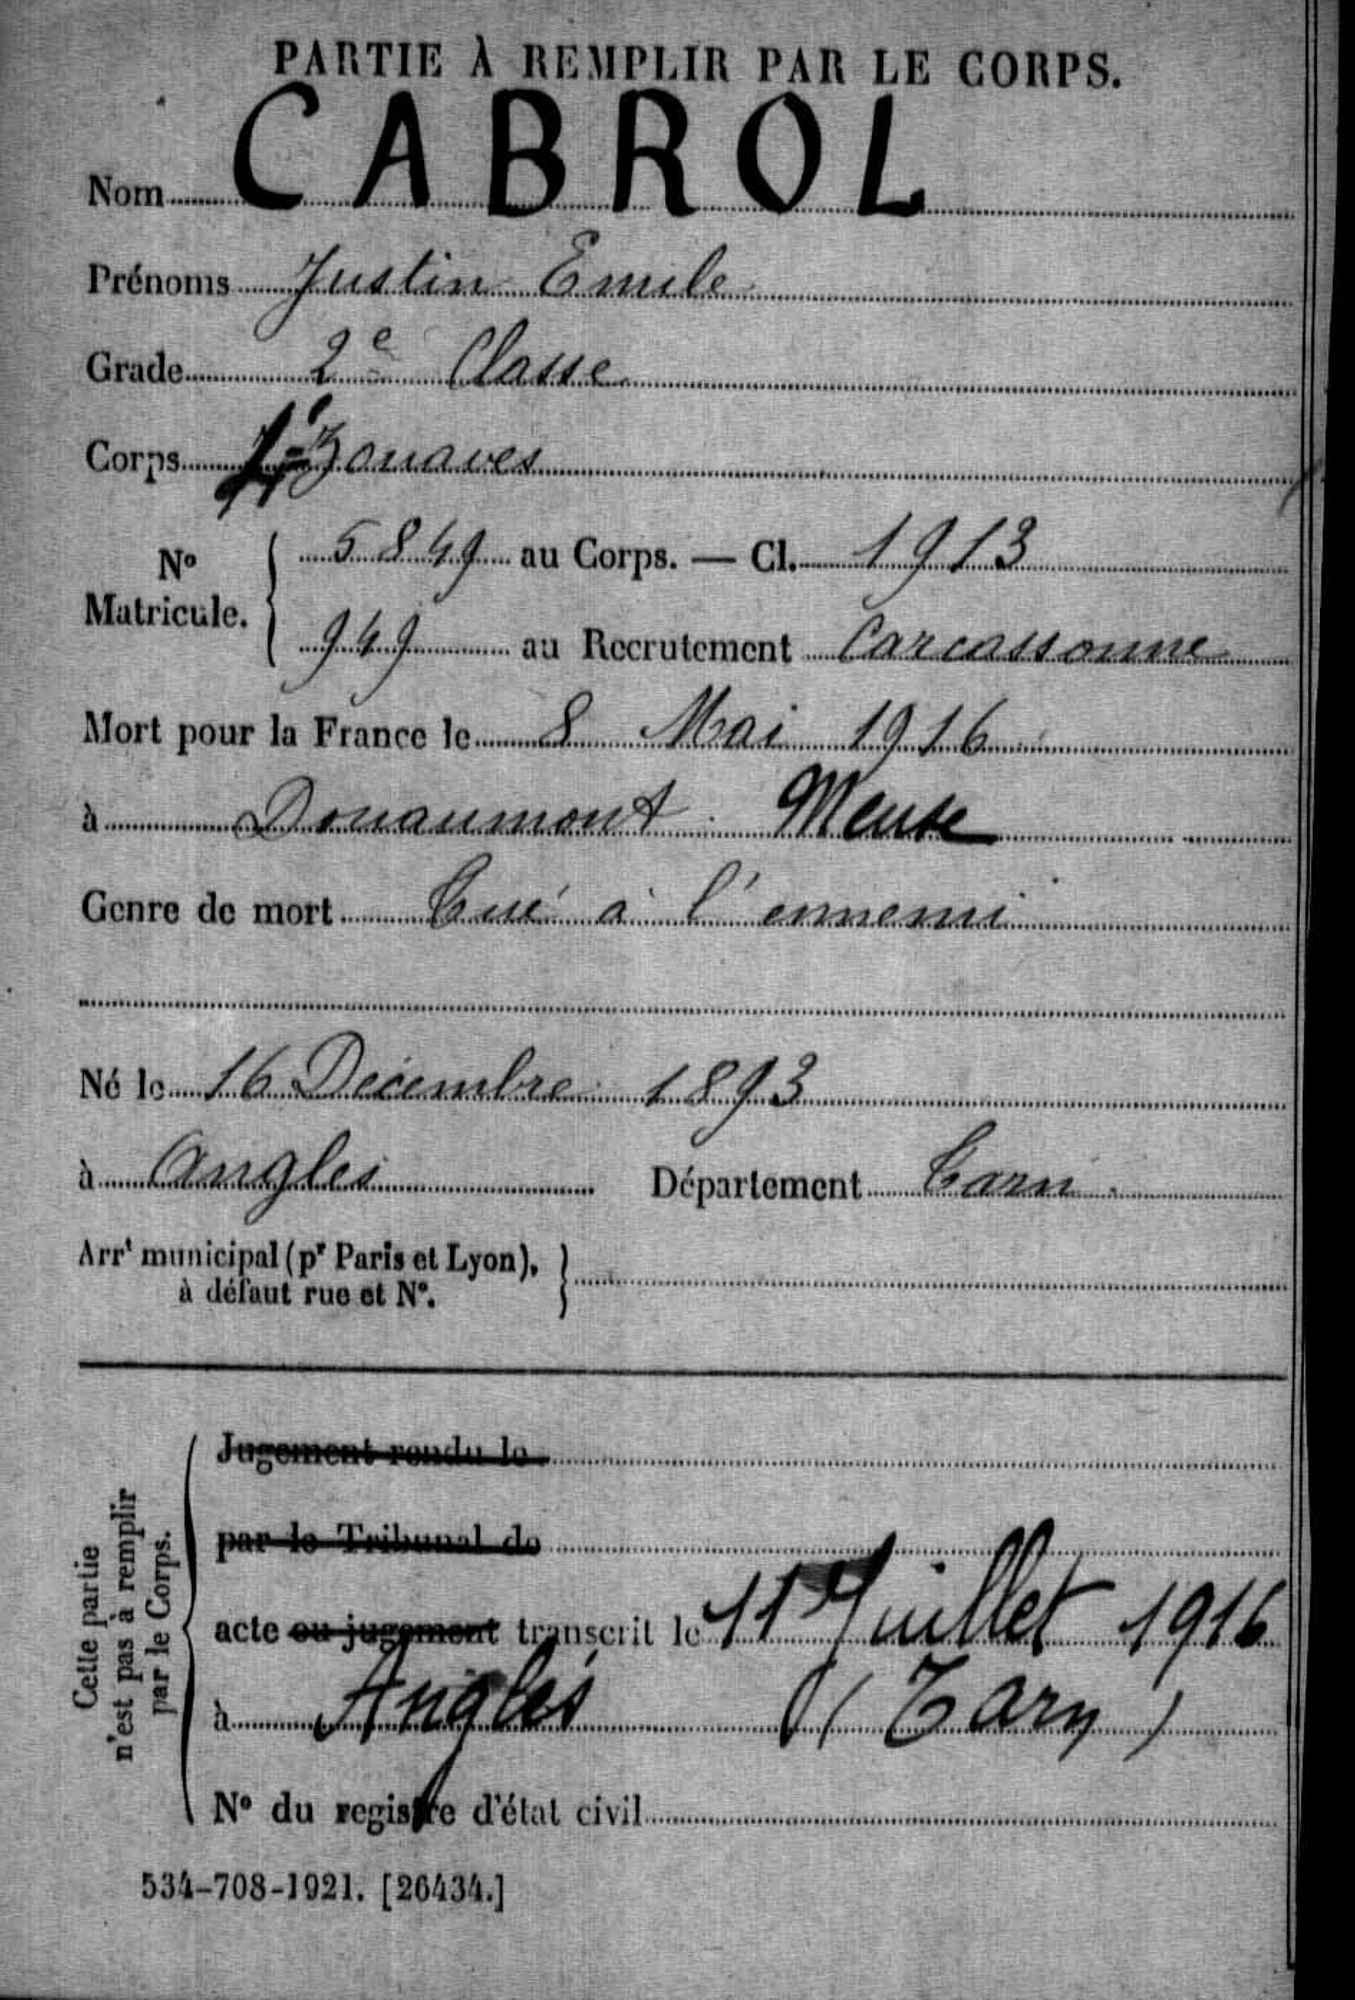 PARTIE À REMPLIR PAR LE CORPS.
Nom CABROL
Prénoms Justin Emile
Grade 2e Classe
Corps Zouaves
No Matricule. 5849 au Corps. — Cl. 1913
949 au Recrutement Carcassonne
Mort pour la France le 8 Mai 1916
à Douaumont Meuse
Genre de mort Tué à l'ennemi
Né le 16 Décembre 1893
à Anglès Département Tarn
Arrt municipal (pr Paris et Lyon),
à défaut rue et No.
Cette partie
n'est pas à remplir
par le Corps.
Jugement rendu le
par le Tribunal de
acte ou jugement transcrit le 11 Juillet 1916
à Anglès (Tarn)
No du registre d'état civil
534-708-1921. [26434.]